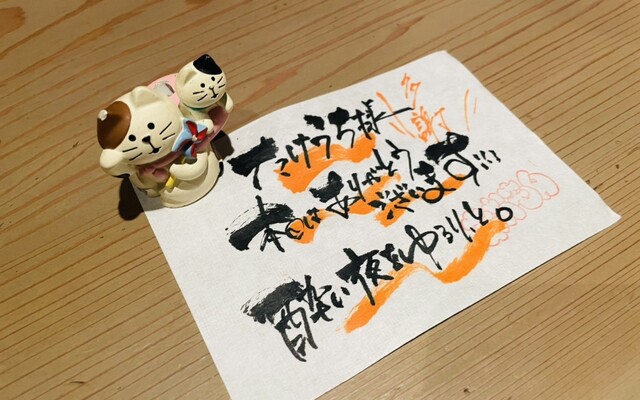 たけうち様
多謝!!
本日はありがとう
ございます!!!
酔い夜をゆるりと。